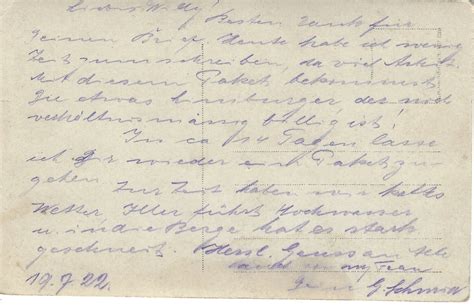 Lieber Willy! Besten Dank für
Deinen Brief, heute habe ich wenig
Zeit zum schreiben, da viel Arbeit.
Mit diesem Paket bekommst
Du etwas Limburger der noch
verhältnismäsig billig ist!
In ca 14 Tagen lasse
ich Dir wieder ein Paket zu-
gehen. Zur Zeit haben wir kaltes
Wetter, Iller führt Hochwasser
u. in die Berge hat es stark
geschneit. Herzl. Gruss an
auch von my Frau
19.7.22. G. Schmitt